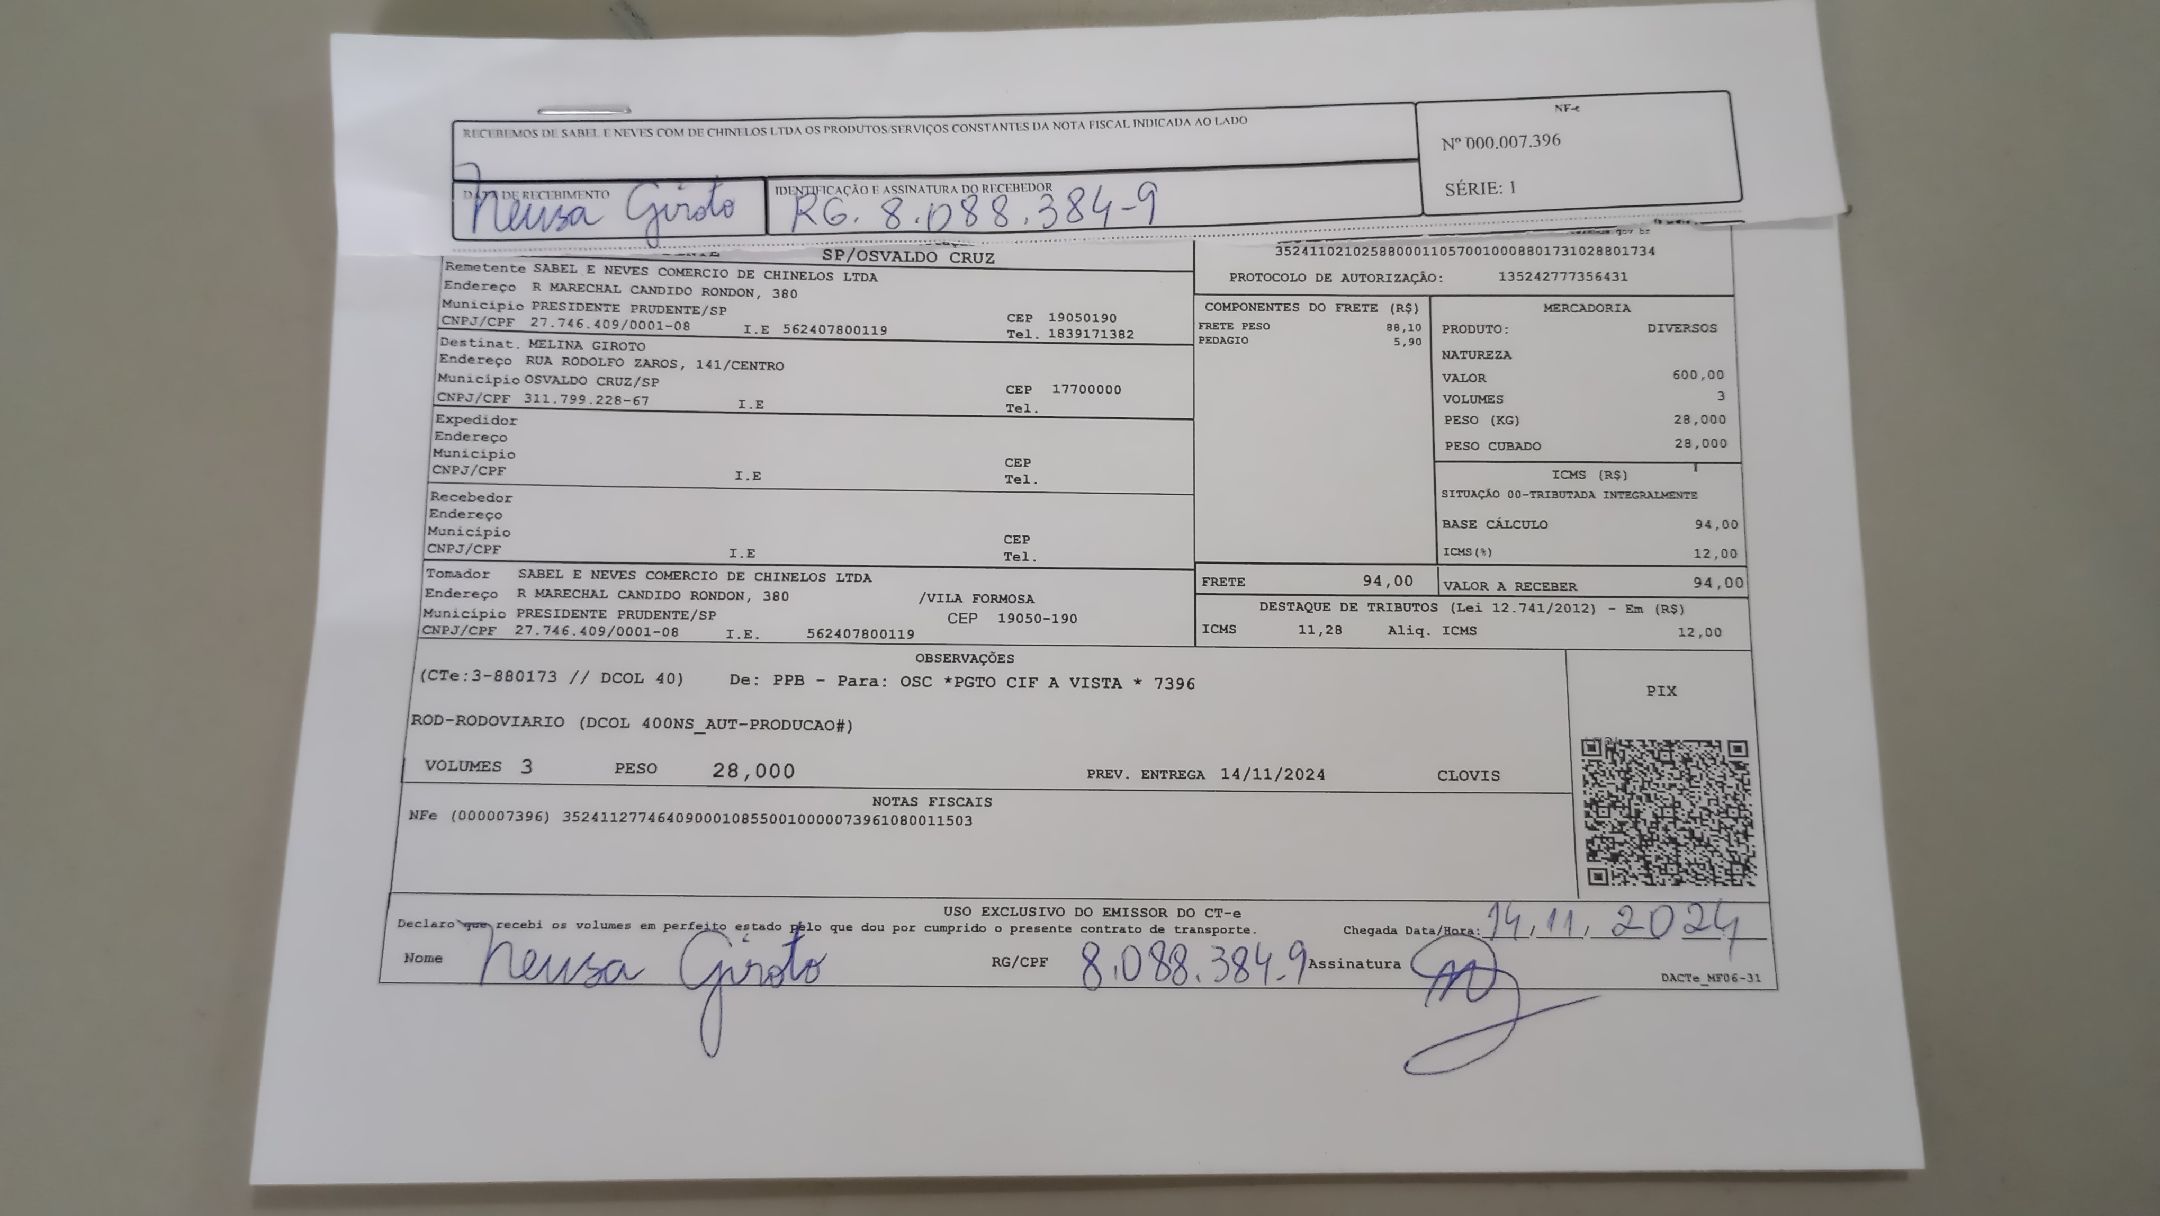 RECEBEMOS DE SABEL E NEVES COM DE CHINELOS LTDA OS PRODUTOS/SERVIÇOS CONSTANTES DA NOTA FISCAL INDICADA AO LADO
NF-e
Nº 000.007.396
SÉRIE: 1
DATA DE RECEBIMENTO
Neusa Giroto
IDENTIFICAÇÃO E ASSINATURA DO RECEBEDOR
RG. 8.088.384-9
SP/OSVALDO CRUZ
35241102102588000110570010008801731028801734
PROTOCOLO DE AUTORIZAÇÃO: 135242777356431
Remetente SABEL E NEVES COMERCIO DE CHINELOS LTDA
Endereço R MARECHAL CANDIDO RONDON, 380
Município PRESIDENTE PRUDENTE/SP CEP 19050190
CNPJ/CPF 27.746.409/0001-08 I.E 562407800119 Tel. 1839171382
Destinat. MELINA GIROTO
Endereço RUA RODOLFO ZAROS, 141/CENTRO
Município OSVALDO CRUZ/SP CEP 17700000
CNPJ/CPF 311.799.228-67 I.E Tel.
Expedidor
Endereço
Município CEP
CNPJ/CPF I.E Tel.
Recebedor
Endereço
Município CEP
CNPJ/CPF I.E Tel.
Tomador SABEL E NEVES COMERCIO DE CHINELOS LTDA
Endereço R MARECHAL CANDIDO RONDON, 380 /VILA FORMOSA
Município PRESIDENTE PRUDENTE/SP CEP 19050-190
CNPJ/CPF 27.746.409/0001-08 I.E. 562407800119
COMPONENTES DO FRETE (R$)
FRETE PESO 88,10
PEDAGIO 5,90
MERCADORIA
PRODUTO: DIVERSOS
NATUREZA
VALOR 600,00
VOLUMES 3
PESO (KG) 28,000
PESO CUBADO 28,000
ICMS (R$)
SITUAÇÃO 00-TRIBUTADA INTEGRALMENTE
BASE CÁLCULO 94,00
ICMS(%) 12,00
FRETE 94,00 VALOR A RECEBER 94,00
DESTAQUE DE TRIBUTOS (Lei 12.741/2012) - Em (R$)
ICMS 11,28 Aliq. ICMS 12,00
OBSERVAÇÕES
(CTe:3-880173 // DCOL 40) De: PPB - Para: OSC *PGTO CIF A VISTA * 7396
PIX
ROD-RODOVIARIO (DCOL 400NS_AUT-PRODUCAO#)
VOLUMES 3 PESO 28,000 PREV. ENTREGA 14/11/2024 CLOVIS
NOTAS FISCAIS
NFe (000007396) 35241127746409000108550010000073961080011503
USO EXCLUSIVO DO EMISSOR DO CT-e
Declaro que recebi os volumes em perfeito estado pelo que dou por cumprido o presente contrato de transporte. Chegada Data/Hora: 14.11.2024
Nome Neusa Giroto RG/CPF 8.088.384-9 Assinatura
DACTe_MF06-31